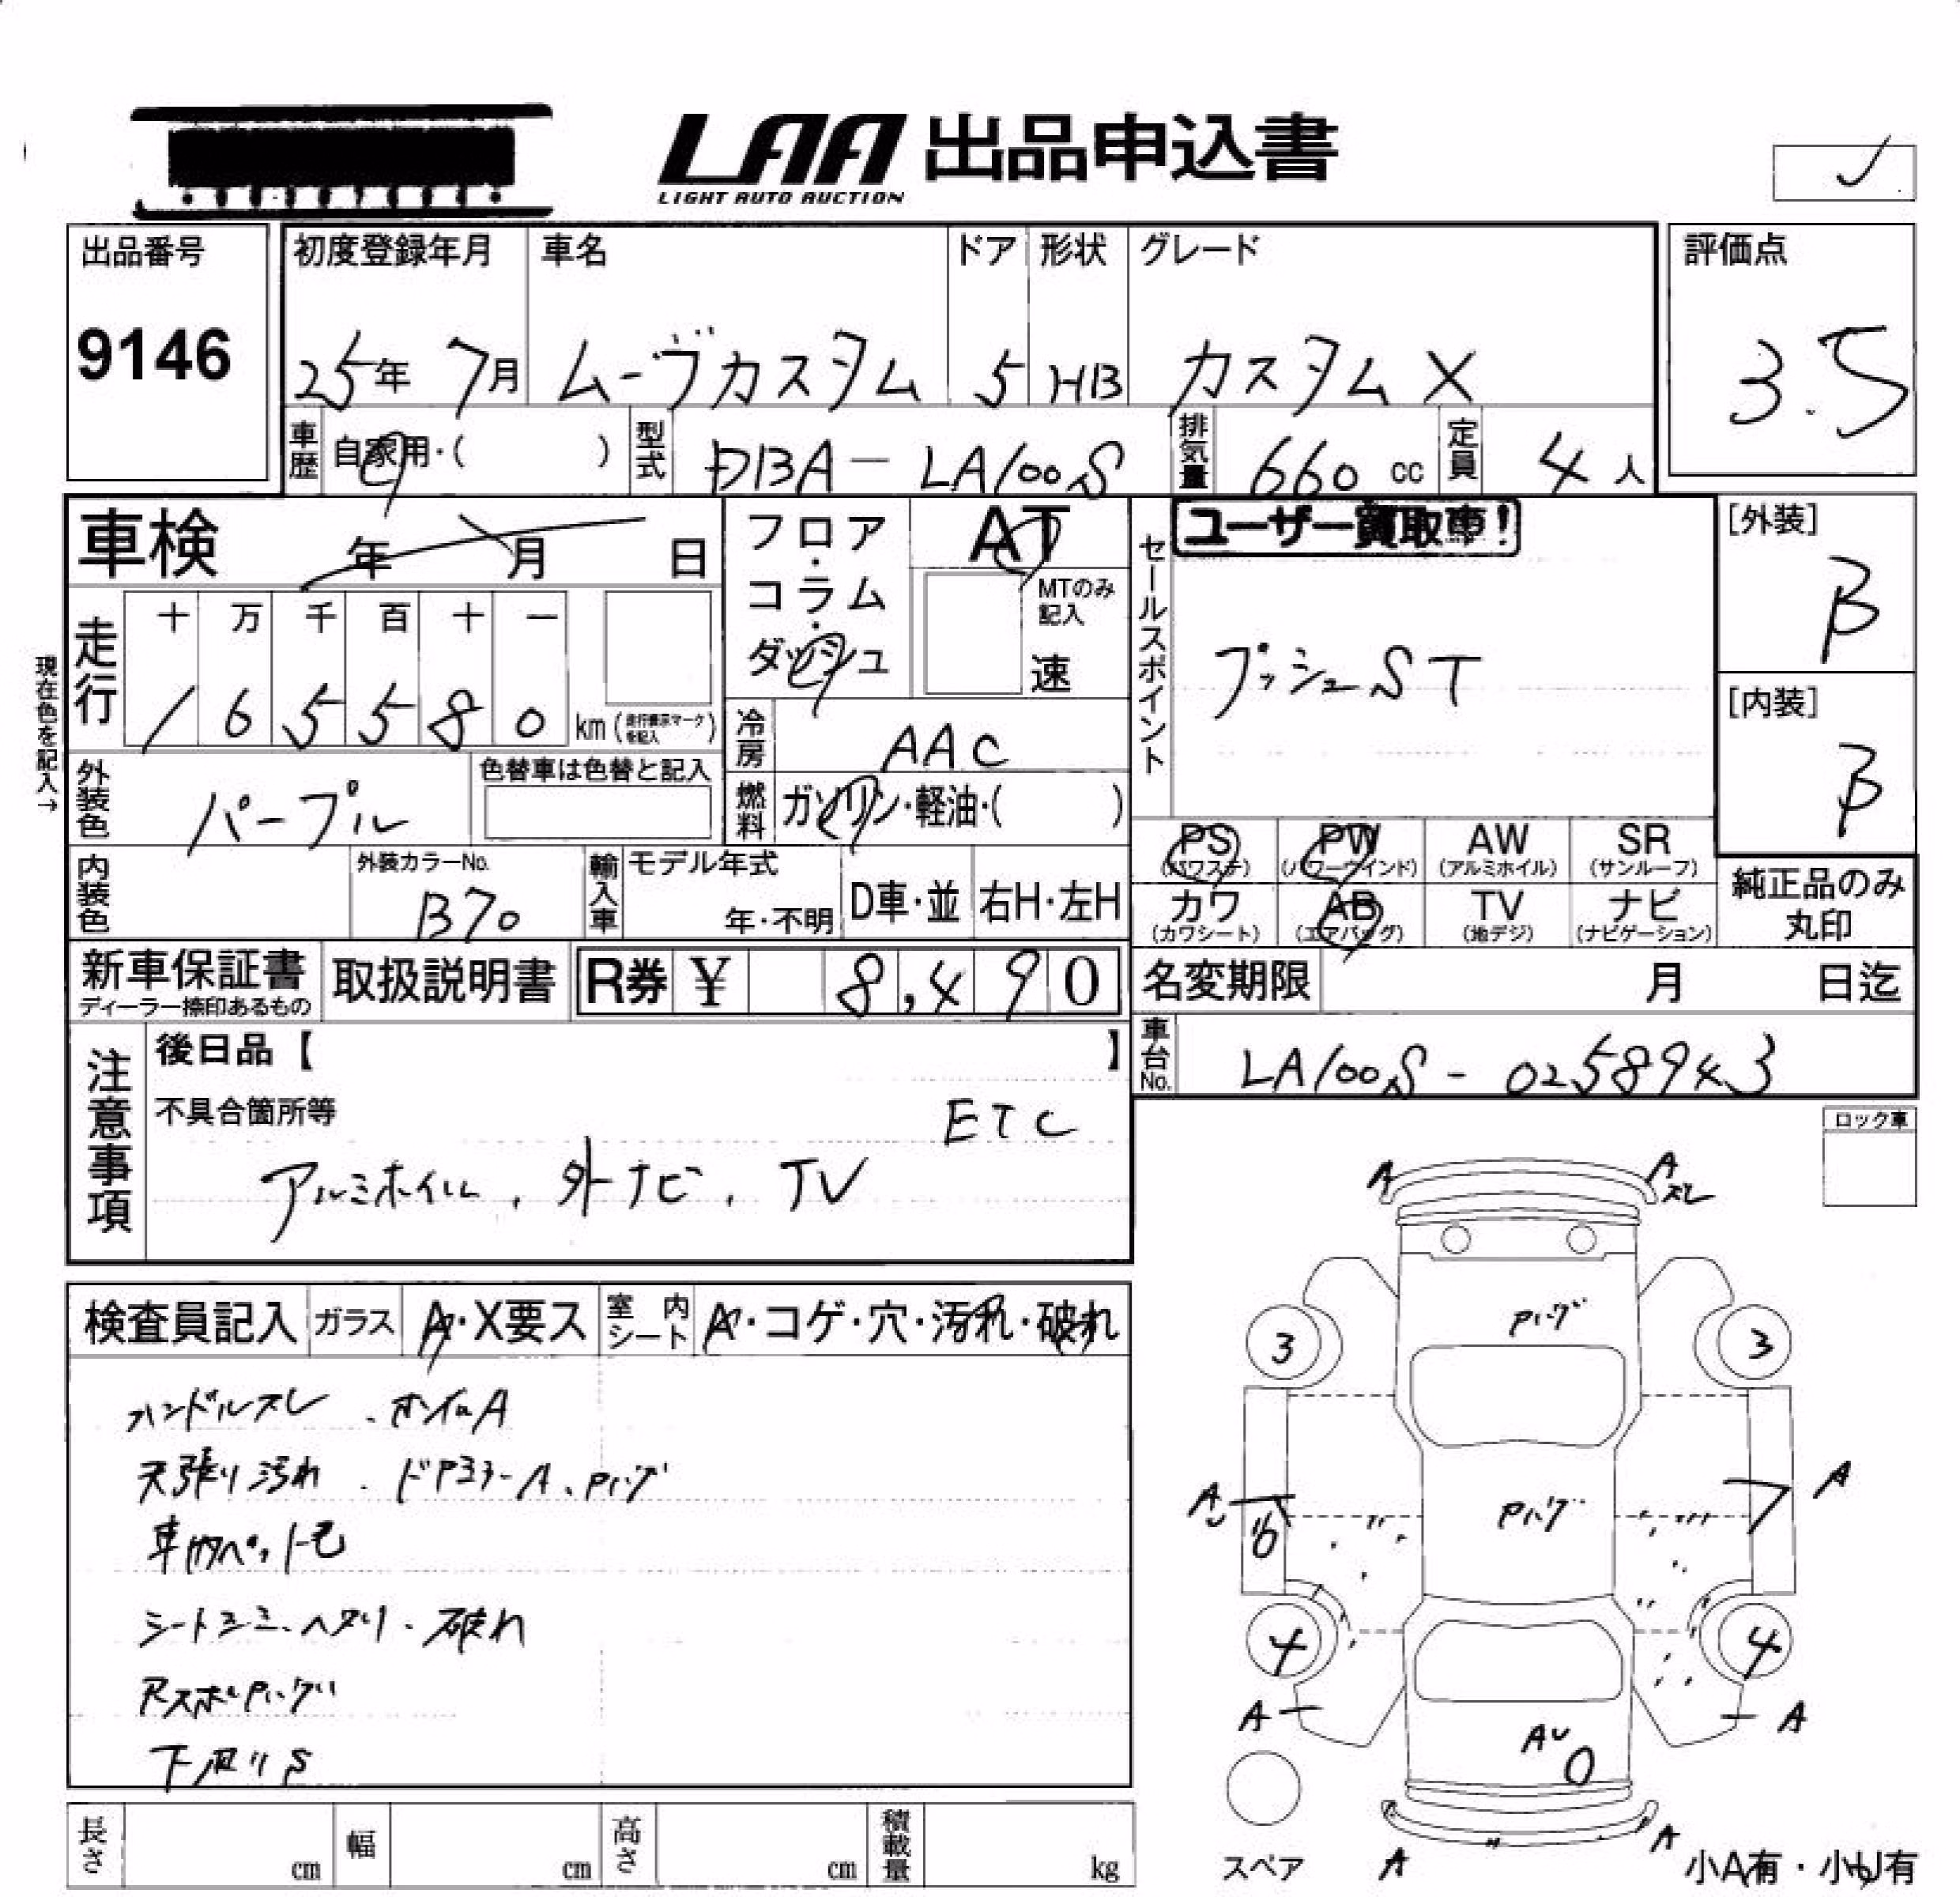 LAA 出品申込書
LIGHT AUTO AUCTION
出品番号
9146
初度登録年月
25年 7月
車名
ムーヴカスタム
ドア
5
形状
HB
グレード
カスタム X
評価点
3.5
車歴
自家用・( )
型式
DBA-LA100S
排気量
660 cc
定員
4 人
車検 年 月 日
フロア・コラム・ダッシュ
AT
MTのみ記入
速
セールスポイント
ユーザー買取車!
プッシュST
[外装]
B
[内装]
B
現在色を記入→
走行
十 万 千 百 十 一
1 6 5 5 8 0 km (走行表示マークを記入)
冷房
AAC
燃料
ガソリン・軽油・( )
外装色
パープル
色替車は色替と記入
内装色
外装カラーNo.
B70
輸入車
モデル年式
年・不明
D車・並
右H・左H
PS (パワステ)
PW (パワーウインド)
AW (アルミホイル)
SR (サンルーフ)
カワ (カワシート)
AB (エアバッグ)
TV (地デジ)
ナビ (ナビゲーション)
純正品のみ丸印
新車保証書
ディーラー捺印あるもの
取扱説明書
R券 ¥ 8,490
名変期限 月 日迄
車台No.
LA100S-0258943
注意事項
後日品【 】
不具合箇所等
ETC
アルミホイル、外ナビ、TV
ロック車
検査員記入
ガラス
A・X要ス
室内シート
A・コゲ・穴・汚れ・破れ
ハンドルスレ、ホイルA
天張り汚れ、ドアミラーA、Pハゲ
車内ペット毛
シートシミ、ヘタリ、破れ
RスポPハゲ
下廻りS
A
A
スレ
Pハゲ
3
3
A
A
Pハゲ
4
4
A
A
AU
A
A
スペア
小A有・小U有
長さ cm
幅 cm
高さ cm
積載量 kg